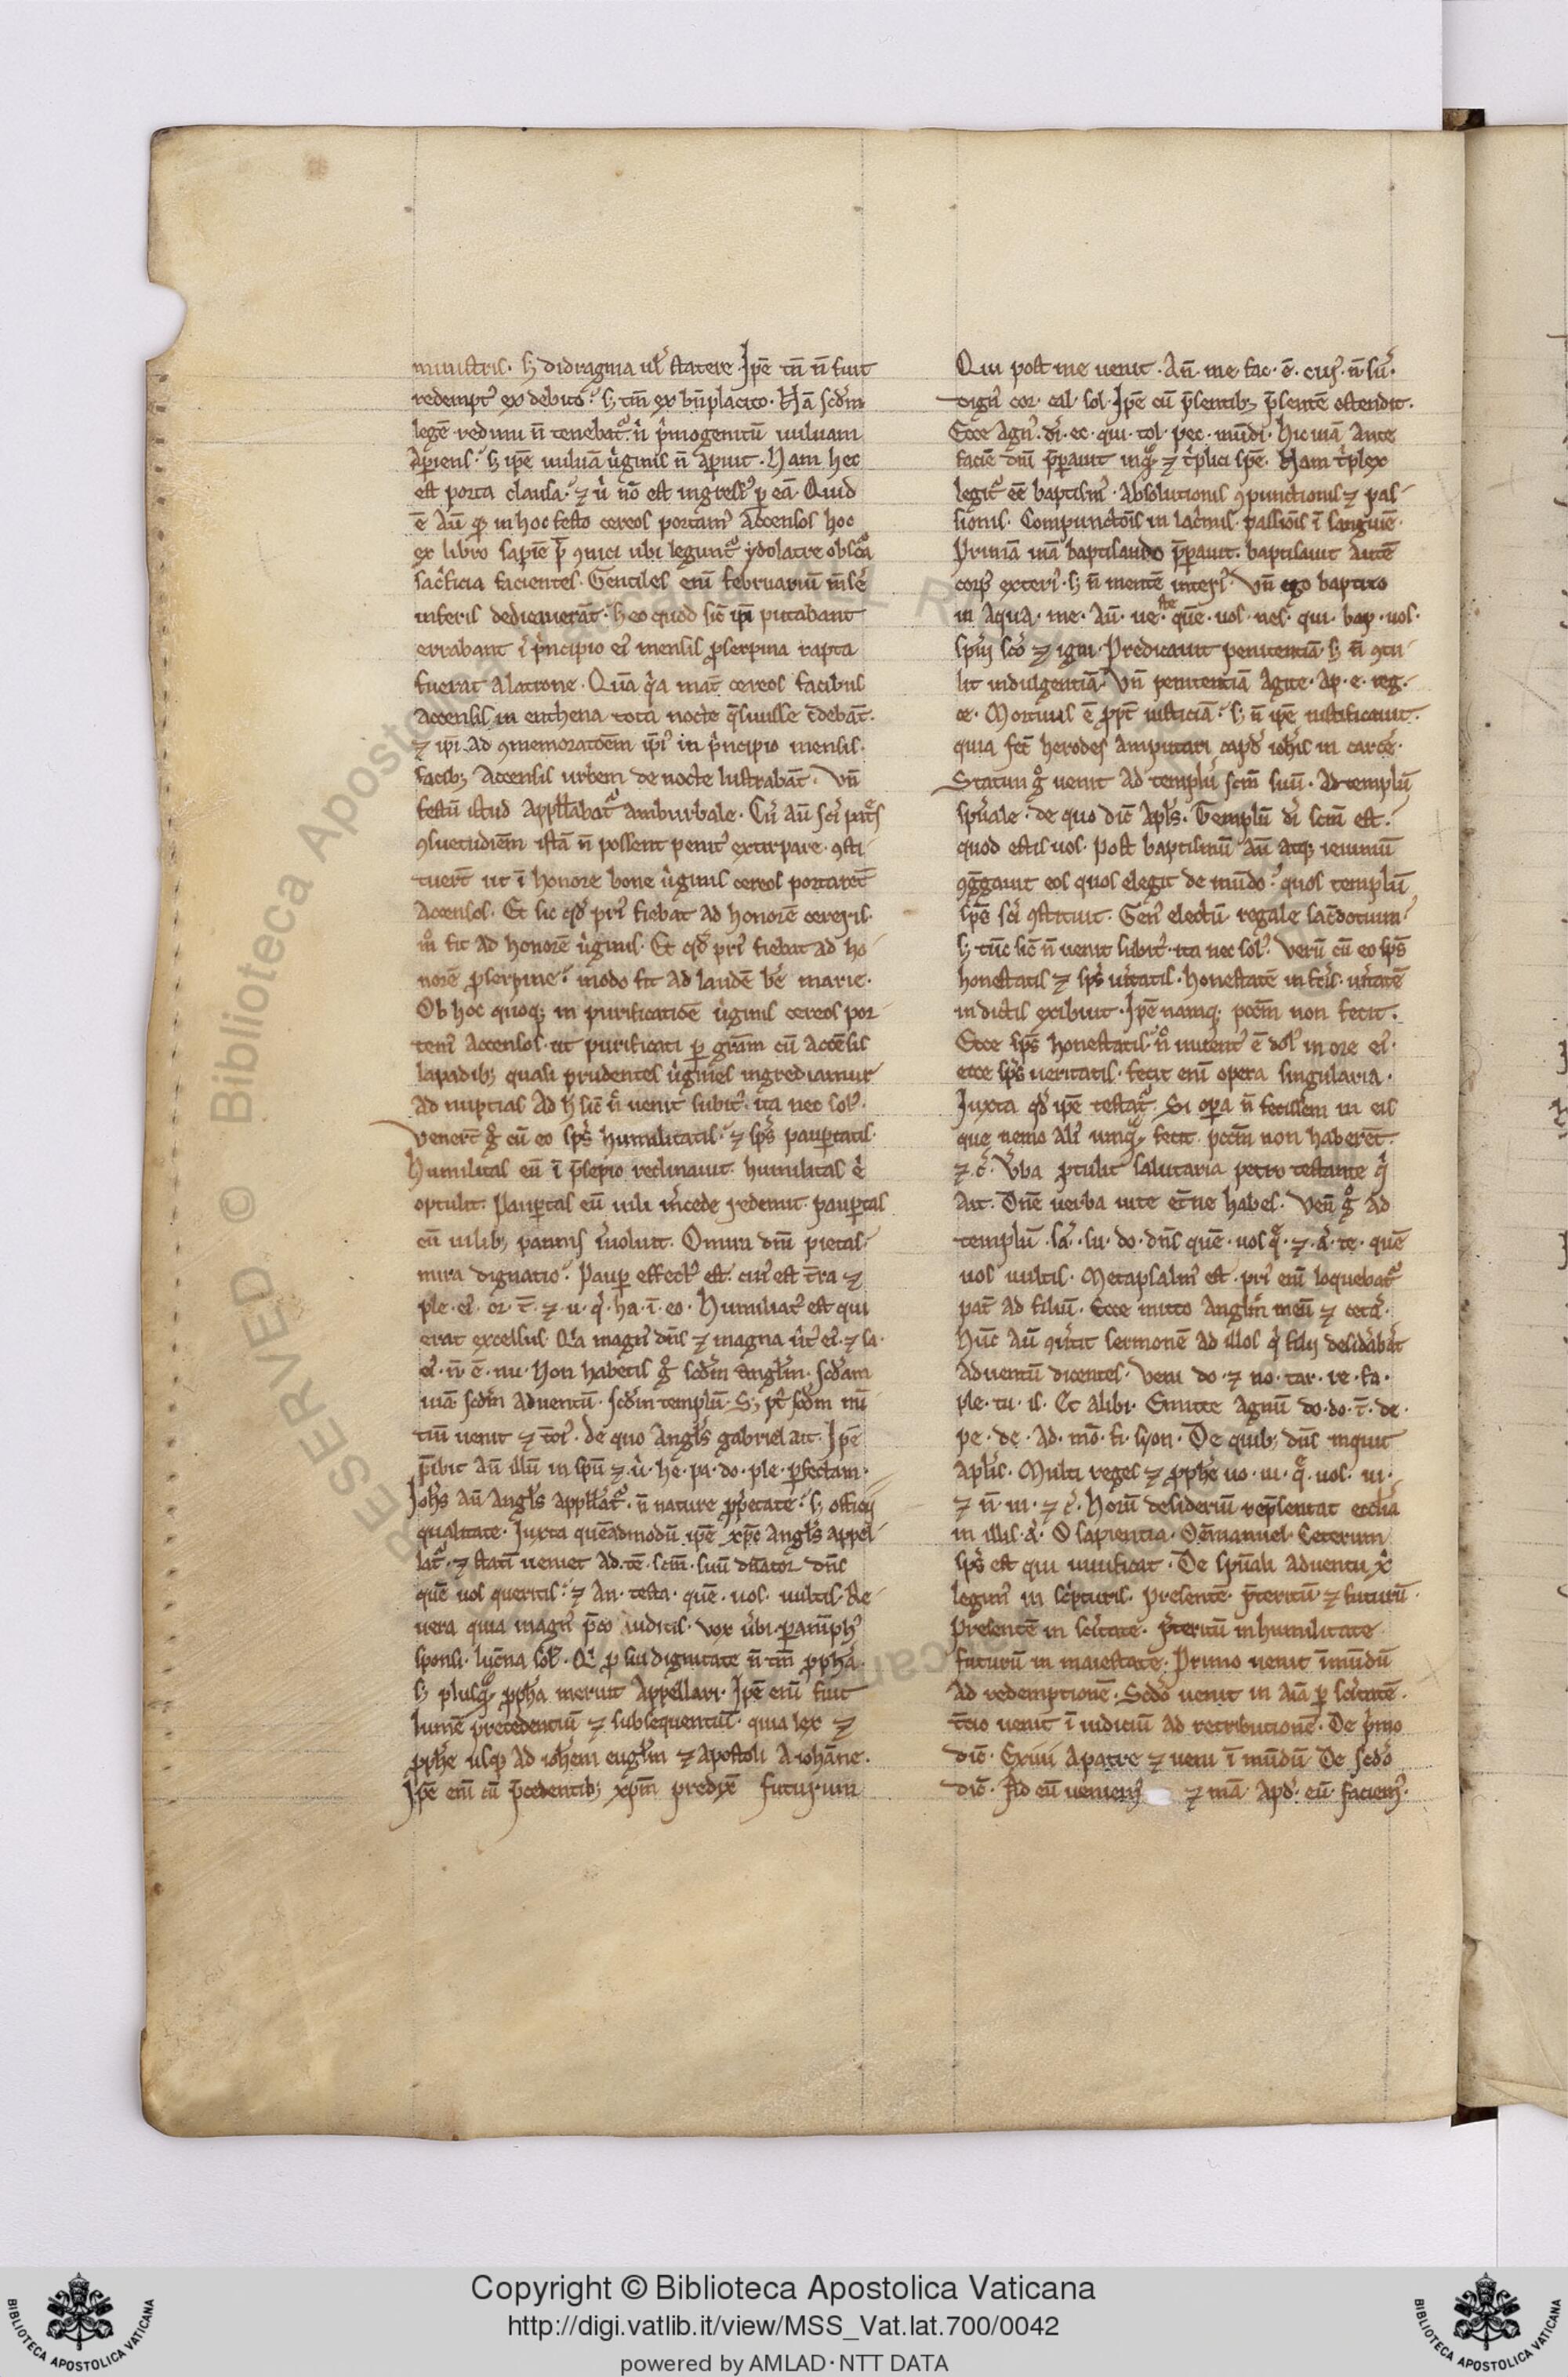 ministris. h̵ didragma ul̕ statere Ipē tn̄ n̄ fuit
redempt᷒ ex debito. h̵ tm̄ ex bn̄placito. Nā scd̕m
legē redimi n̄ tenebat᷑. n̄ p̕mogenitū uuluam
apiens. h̵ ipē uuluā ũginis n̄ apuit. Nam hec
est porta clausa. ⁊ ũ nō est ingress᷒ p eā. Quid
ē aū qꝫ in hoc festo cereos portam᷒ accensos hoc
ex libro sapiē
sac̕ficia facientes. Gentiles eni᷒ februariū
inferis dedicauerāt. h̵ eo quod sic̄ ipi putabant
errabant i p̕ncipio ei᷒ mensis ꝓserpina rapta
fuerat a latrone. Quā q̕a mat̄ cereos facibus
accensis in enthena tota nocte q̄siuisse c̄debāt.
⁊ ipi ad ꝯmemoratōem ip̄i᷒ in p̕ncipio mensis.
facibꝫ accensis urbem de nocte lustrabāt. Vn̄
festū istud appllabat᷑ amburbale. Cū aū sc̄i pr̄es
ꝯsuetudiēm istā n̄ possent penit᷒ extirpare. ꝯsti
tuer̄t ut ī honore bone ũginis cereos portarēt
accensos. Et sic qd̕ pri᷒ fiebat ad honorē cereris.
m̊ fit ad honorē ũginis. Et qd̕ pri᷒ fiebat ad ho
norē ꝓserpine. modo fit ad laudē be᷒ marie.
Ob hoc quoqꝫ in purificatiōe ũginis cereos por
tem᷒ accensos. ut purificati p gr̄am cū accēsis
lāpadibꝫ quasi prudentes ũgines ingrediamur
ad nuptias Ad h̵ sic̄ n̄ uenit subit᷒. ita nec sol᷒.
Venert̄ g̊ cū eo sp̄s humilitatis. ⁊ sp̄s paupertatis.
Humilitas eū ī p̄sepio reclinauit. humilitas
optulit. Paupertas eū uili m̄cede redemit. paupertas
eū uilibꝫ pannis īuoluit. O mira dīn pietas.
mira dignatio. Pauper effect᷒ est. cui᷒ est t̄ra ⁊
ple. ei᷒. or. t̄. ⁊ u. q̕. ha. ī. eo. Humiliat᷒ est qui
erat excelsus. Q̕a magn᷒ dn̄s ⁊ magna ũt᷒ ei᷒. ⁊ sa.
ei᷒. n̄. ē. nu. Non habetis g̊ scd̕m anglm. scd̕am
uiā. scd̕m aduentū. scd̕m templū.
tiū uenit de quo angl̕s gabriel ait. Ipē
p̄ibit aū illū in sp̄u ⁊ ũ. he. pa. do. ple. pfectam.
Ioh̄s aū angl̕s appllat᷑. n̄ nature ꝓp̕etate. h̵ officij
qualitate. Iuxta quēadmodū ipē xp̄c angl̕s appel
lat᷑. ⁊ statī ueniet ad. tē. scm̄. suū dn̄ator dn̄s
quē uos queritis. ⁊ an. testa. quē. uos. uultis. Re
uera quia magn᷒ p̄co iudicis. uox ũbi. paraniph᷒
sponsi. luc̄na sol᷒. Q̕ ꝓ sui dignitate n̄ tm̄ ꝓpha.
h̵ plusqꝫ ꝓpha meruit appellari. Ipē eni᷒ fuit
lumē precedentiū ⁊ subsequentiū. quia lex ⁊
ꝓphe usqꝫ ad ioh̄em euglm ⁊ apostoli a iohāne.
Ipē eni᷒ cū p̄cedentibꝫ xp̄m predix̄ futurum
Qui post me uenit. An̄. me fac. ē. cui᷒. n̄. su᷒.
dign᷒ cor. cal. sol. Ipē cū p̄sentibꝫ p̄sentē ostendit.
Ecce agn᷒. di. ec. qui. tol. pec. mūdi. Hic uiā ante
faciē dn̄i p̄parauit inqꝫ ⁊ t̕plici spē. Nam t̕plex
legit᷑ eē baptism᷒. Absolutionis ꝯpunctionis ⁊ pas
sionis. Compunctōis in lac̕mis. passiōis ī sanguie.
Primā uiā baptisando p̄parauit. baptisauit autē
corp᷒ exteri᷒. h̵ n̄ mentē interi᷒. Vn̄ ego baptizo
in aqua. me. aū. ue. quē. uos. nes. qui. bap. uos.
sp̄u sc̄o ⁊ igni. Predicauit penitentiā h̵ n̄ ꝯtu
lit indulgentiā. Vn̄ penitentiā agite. ap. e. reg.
ce. Mortuus ē ꝓpt̄ iusticiā. h̵ n̄ ipē iustificauit.
quia fec̄ herodes amputari capd̕ ioh̄is in carce.
Statim g̊ uenit ad templū scm̄ suū. ad templū
sp̄uale. de quo dic̄ apl̕s. Templū di scm̄ est.
quod estis uos. post baptismū aū atqꝫ ieiuniū
ꝯgregauit eos quos elegit de mūdo. quos templū
sp̄s sc̄i ꝯstituit. Gen᷒ electū. regale sac̄dotium.
h̵ tūc sic̄ n̄ uenit subit᷒. ita nec sol᷒. Verū cū eo sp̄s
honestatis ⁊ sp̄s ũitatis. honestatē in fc̄is. ũitatē
in dictis exibuit. Ipē namqꝫ pccm̄ non fecit.
Ecce sp̄s honestatis. n̊ inuent᷒ ē dol᷒ in ore ei᷒.
ecce sp̄s ueritatis. fecit eni᷒ opera singularia.
Iuxta qd̕ ipē testat᷑. Si opa n̄ fecissem in eis
que nemo ali᷒ umqꝫ fecit. pccm̄ non haberēt.
⁊ c̄. Vba ꝓtulit salutaria petro testante q̕
ait. Dn̄e uerba uite et̄ne habes. Ven̄ g̊ ad
templū. sa᷒. su. do. dn̄s quē. uos q̊. ⁊. a᷒. te. quē
uos uultis. Metapsalm᷒ est. pri᷒ eni᷒ loquebat᷑
pat̄ ad filiū. Ecce mitto anglm meū ⁊ cet̕a.
Hūc aū ꝯũtit sermonē ad illos q̕ filij desid̕abāt
aduentū dicentes. Veni do. ⁊ no. tar. re. fa.
ple. tu. is. Et alibi. Emitte agnū do. do. t̄. de.
pe. de. ad. mō. fi. syon. De quibꝫ dn̄s inquit
apl̕is. Multi reges ⁊ ꝓphe uo. ui. q̊. uos. ui.
⁊ n̄. ui. ⁊ c̄. Horū desideriū repn̄sentat ecclia
in illis. a᷒. O sapientia. O emanuel. Ceterum
sp̄s est qui uiuificat. De sp̄uali aduentu x̕
legim᷒ in sc̕pturis. Presentē. p̄teritū ⁊ futurū.
Presentē in sc̄itate. p̄teritū in humilitate
futurū in maiestate. Primo uenit ī mūdū
ad redemptionē. Scd̕o uenit in aīa p sc̄itatē.
t̄cio uenit ī iudiciū ad retributionē. De p̕mo
dic̄. Exiui a patre ⁊ ueni ī mūdū De scd̕o
dic̄. Ad eū ueniem᷒ ⁊ mā apd̕. eū. faciem᷒.
Copyright © Biblioteca Apostolica Vaticana
http://digi.vatlib.it/view/MSS_Vat.lat.700/0042
powered by AMLAD · NTT DATA
BIBLIOTECA APOSTOLICA VATICANA
BIBLIOTECA APOSTOLICA VATICANA